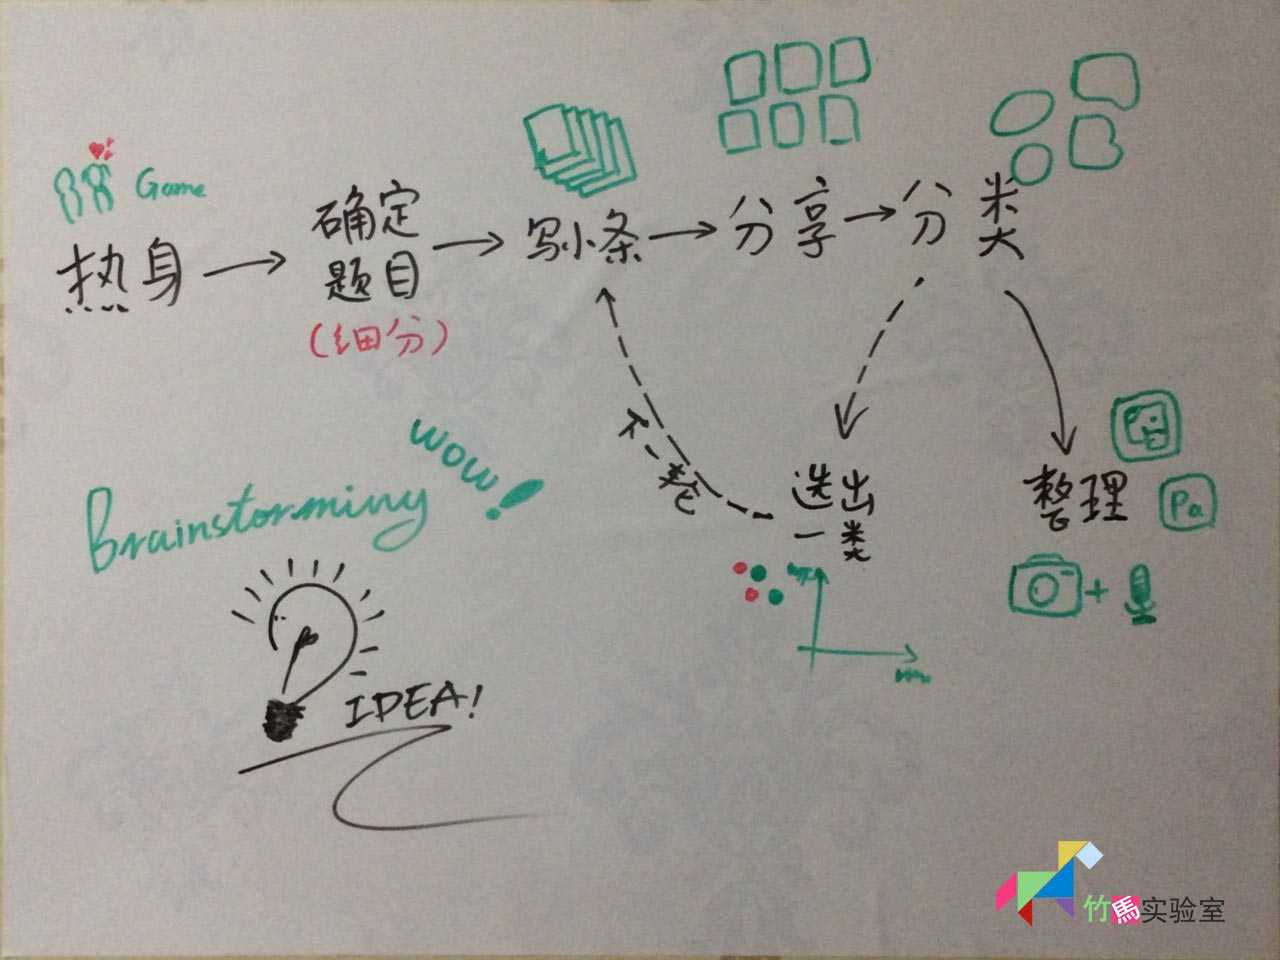 Game
热身
确定
题目
(细分)
写小条
分享
分类
下一轮
选出
一类
整理
Pa
Brainstorming
wow!
IDEA!
竹馬实验室